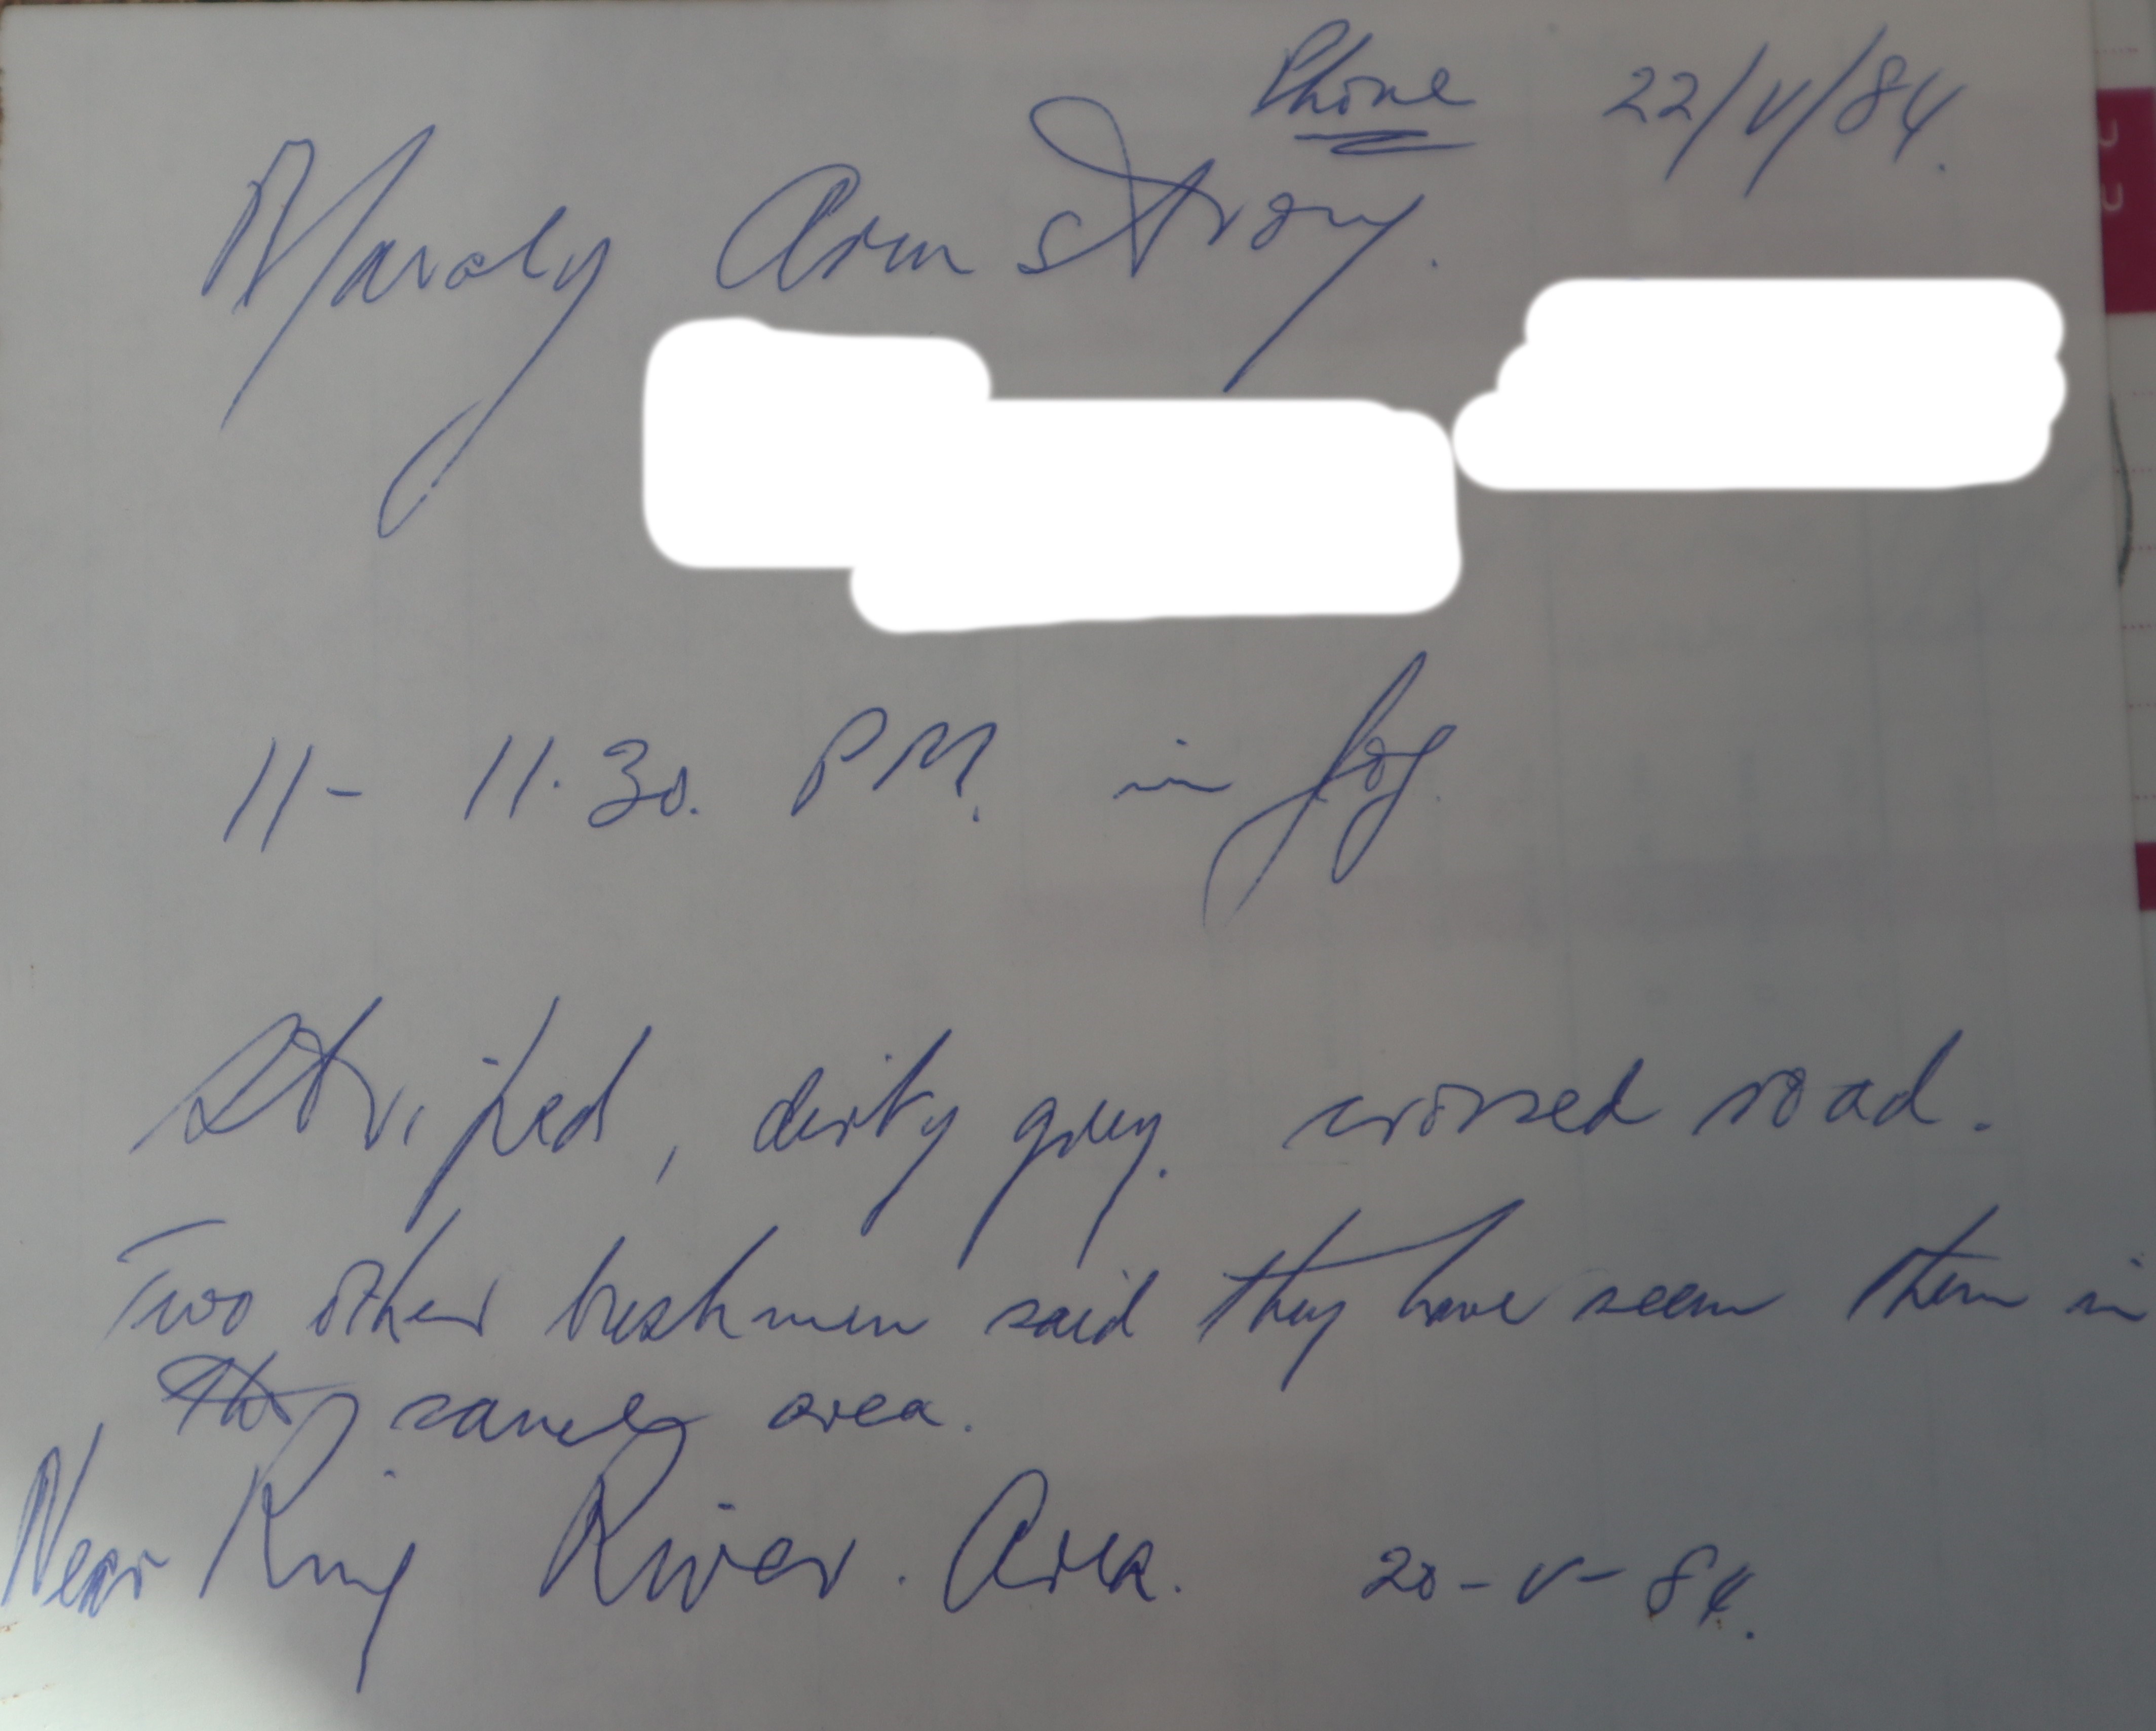 Phone 22/V/84.
Maroly Armstrong.
11- 11.30. PM. in fog.
Striped, dirty grey. crossed road.
Two other bushmen said they have seem them in
the same area.
Near King River. Area. 20-V-84.